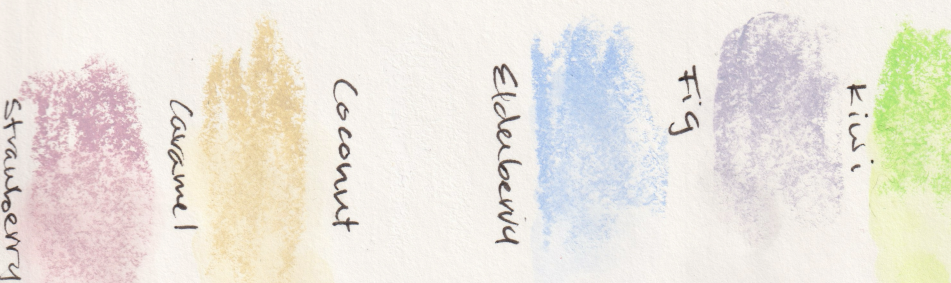 Strawberry
Caramel
Coconut
Elderberry
Fig
Kiwi